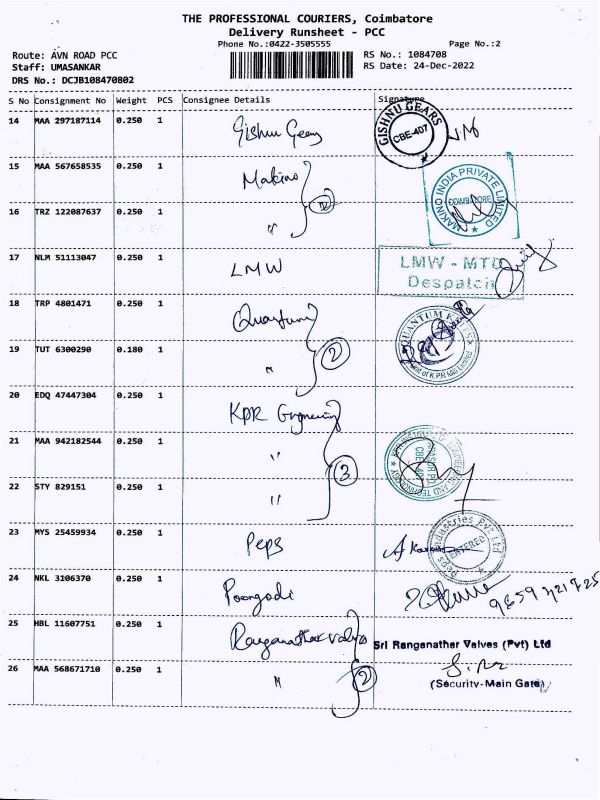 THE PROFESSIONAL COURIERS, Coimbatore
Delivery Runsheet - PCC
Phone No.:0422-3505555 Page No.:2
Route: AVN ROAD PCC RS No.: 1084708
Staff: UMASANKAR RS Date: 24-Dec-2022
DRS No.: DCJB108470802
S No Consignment No Weight PCS Consignee Details Signature
14 MAA 297187114 0.250 1 Gishnu Gears GISHNU GEARS CBE-407
15 MAA 567658535 0.250 1 Makino MAKINO INDIA PRIVATE LIMITED COIMBATORE
16 TRZ 122087637 0.250 1 " 2
17 NLM 51113047 0.250 1 LMW LMW - MTD
Despatch
18 TRP 4801471 0.250 1 Quantum QUANTUM KNITS
19 TUT 6300290 0.180 1 " 2 Unit of K.P.R Mill Limited
20 EDQ 47447304 0.250 1 KPR Engineering
21 MAA 942182544 0.250 1 " CBE-407
22 STY 829151 0.250 1 " 3
23 MYS 25459934 0.250 1 Peps Peps Industries Pvt Ltd ENTERED
24 NKL 3106370 0.250 1 Poongodi 9659721725
25 HBL 11607751 0.250 1 Ranganathar Valves Sri Ranganathar Valves (Pvt) Ltd
26 MAA 568671710 0.250 1 " 2 (Security-Main Gate)